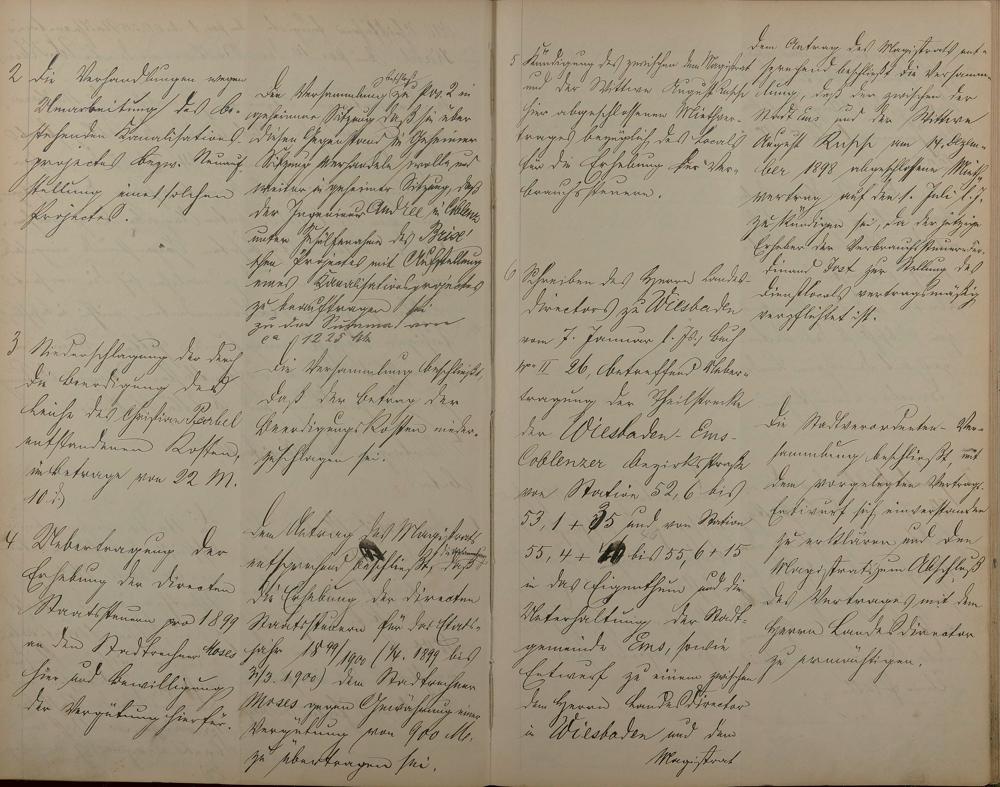 2 Die Verhandlungen wegen
Umarbeitung des be-
stehenden Kanalisations-
projectes bezw. Neuauf-
stellung eines solchen
Projectes.
Die Versammlung beschließt zu Pos. 2 in
geheimer Sitzung daß sie über
diesen Gegenstand in geheimer
Sitzung verhandeln wolle, und
weiter in geheimer Sitzung, daß
der Ingenieur André in Coblenz
unter Zuhülfenahme des Brix'
schen Projectes mit Aufstellung
eines Kanalisationsprojectes
zu beauftragen sei
zu der Summe von
ca 1225 Mk
3 Niederschlagung der durch
die Beerdigung der
Leiche des Christian
entstandenen Kosten,
im Betrage von 22 M.
10 ₰
Die Versammlung beschließt,
daß der Betrag der
Beerdigungskosten nieder-
zuschlagen sei.
4 Uebertragung der
Erhebung der directen
Staatssteuern pro 1899
an den Stadtrechner Moses
hier und Bewilligung
der Vergütung hierfür.
Dem Antrag des Magistrats
entsprechend beschließt die Versammlung, daß
die Erhebung der directen
Staatssteuern für das Etats-
jahr 1899/1900 (1/4. 1899 bis
31/3. 1900) dem Stadtrechner
Moses gegen Gewährung einer
Vergütung von 900 M.
zu übertragen sei.
5 Kündigung des zwischen dem Magistrat
und der Wittwe August
hier abgeschlossenen Miethver-
trages bezüglich des Locals
für die Erhebung der Ver-
brauchssteuern.
Dem Antrag des Magistrats ent-
sprechend beschließt die Versamm-
lung, daß der zwischen der
Stadt Ems und der Wittwe
August am 14. Dezem-
ber 1898 abgeschlossene Mieth-
vertrag auf den 1. Juli l. J.
zu kündigen sei, da der jetzige
Erheber der Verbrauchssteuern Fer-
dinand Jost zur Stellung des
Dienstlocals vertragsmäßig
verpflichtet ist.
6 Schreiben des Herrn Landes-
directors zu Wiesbaden
vom 7. Januar l. Js., Buch
No II 26, betreffend Ueber-
tragung der Theilstrecke
der Wiesbaden-Ems-
Coblenzer Bezirksstraße
von Station 52,6 bis
53,1 + 35 und von Station
55,4 + bis 55,6 + 15
in das Eigenthum und die
Unterhaltung der Stadt-
gemeinde Ems, sowie
Entwurf zu einem zwischen
dem Herrn Landesdirector
in Wiesbaden und dem
Magistrat
Die Stadtverordneten-Ver-
sammlung beschließt, mit
dem vorgelegten Vertrags-
Entwurf sich einverstanden
zu erklären und den
Magistrat zum Abschluß
des Vertrages mit dem
Herrn Landesdirector
zu ermächtigen.